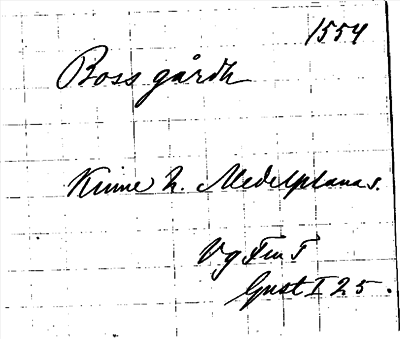 1554
Bossgårdh
Kinne h. Medelplana s.
Vg Fm F
Gust I 25.